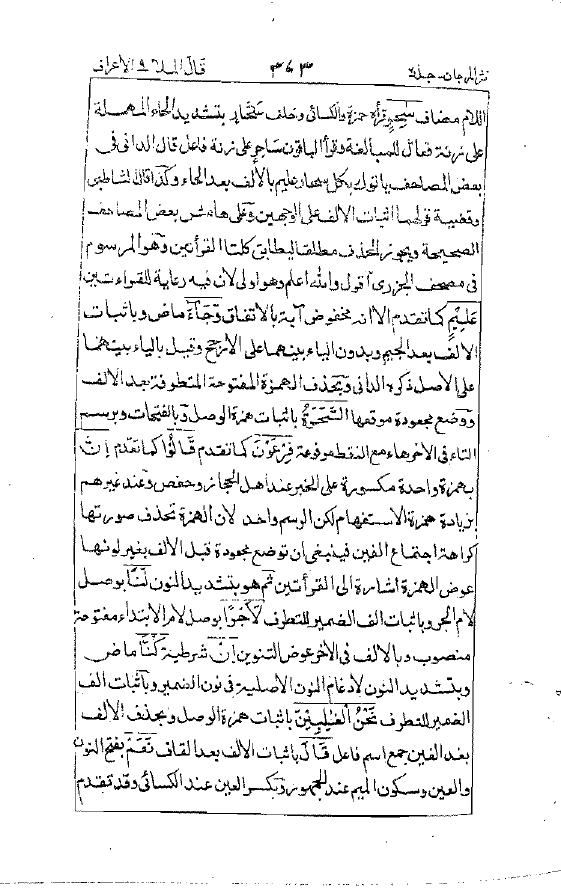 نثر المرجان - جلد ٢ ٣٦٣ قال الملا ٩ الاعراف
اللام مضاف سٰحِرٍ قرأه حمزة والكسائي وخلف سَحَّارٍ بتشديد الحاء المهملة
على زنة فعال للمبالغة وقرأ الباقون ساحر على زنة فاعل قال الداني في
بعض المصاحف يأتوك بكل سحار عليم بالالف بعد الحاء وكذا قال الشاطبي
وقضية قولهما اثبات الالف على الوجهين وعلى هامش بعض المصاحف
الصحيحة ويجوز الحذف مطلقا ليطابق كلتا القرأتين وهو المرسوم
في مصحف الجزري اقول والله اعلم وهو اولى لان فيه رعاية للقراءتين
عَلِيْمٍ كما تقدم الا انه مخفوض آية بالاتفاق وَجَآءَ ماض وباثبات
الالف بعد الجيم وبدون الياء بينهما على الارجح وقيل بالياء بينهما
على الاصل ذكره الداني وبحذف الهمزة المفتوحة المتطرفة بعد الالف
ووضع مجعودة موقعها السَّحَرَةُ باثبات همزة الوصل وبالفتحات وبرسم
التاء في الاخر هاء مع النقط مرفوعة فِرْعَوْنَ كما تقدم قَالُوْا كما تقدم اِنَّ
بهمزة واحدة مكسورة على الخبر عند اهل الحجاز وحفص وعند غيرهم
بزيادة همزة الاستفهام لكن الرسم واحد لان الهمزة تحذف صورتها
كراهة اجتماع الفين فينبغي ان توضع مجعودة قبل الالف بغير لونها
عوض الهمزة اشارة الى القرأتين ثم هو بتشديد النون لَنَا بوصل
لام الجر وباثبات الف الضمير للتطرف لَاَجْرًا بوصل لام الابتداء مفتوحة
منصوب وبالالف في الاخر عوض التنوين اِنْ شرطية كُنَّا ماض
وبتشديد النون لادغام النون الاصلية في نون الضمير وباثبات الف
الضمير للتطرف نَحْنُ الْغٰلِبِيْنَ باثبات همزة الوصل وبحذف الالف
بعد الغين جمع اسم فاعل قَالَ باثبات الالف بعد القاف نَعَمْ بفتح النون
والعين وسكون الميم عند الجمهور وبكسر العين عند الكسائي وقد تقدم